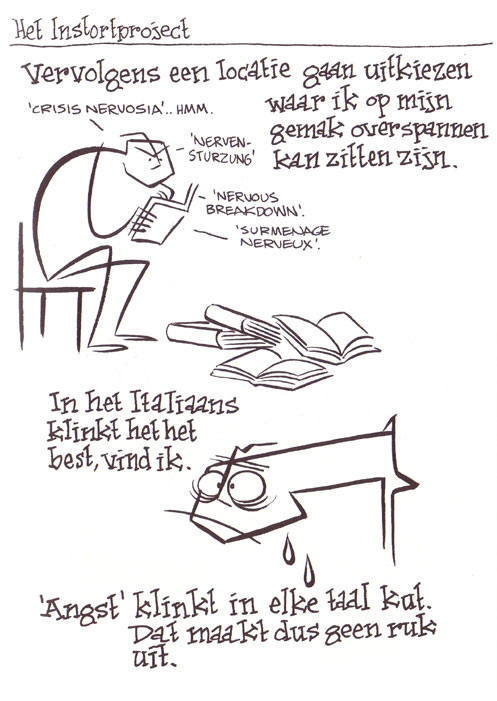 Het Instortproject
Vervolgens een locatie gaan uitkiezen
waar ik op mijn
gemak overspannen
kan zitten zijn.
'CRISIS NERVOSIA'.. HMM.
'NERVEN-
STURZUNG'
'NERVOUS
BREAKDOWN'.
'SURMENAGE
NERVEUX'.
In het Italiaans
klinkt het het
best, vind ik.
'Angst' klinkt in elke taal kut.
Dat maakt dus geen ruk
uit.